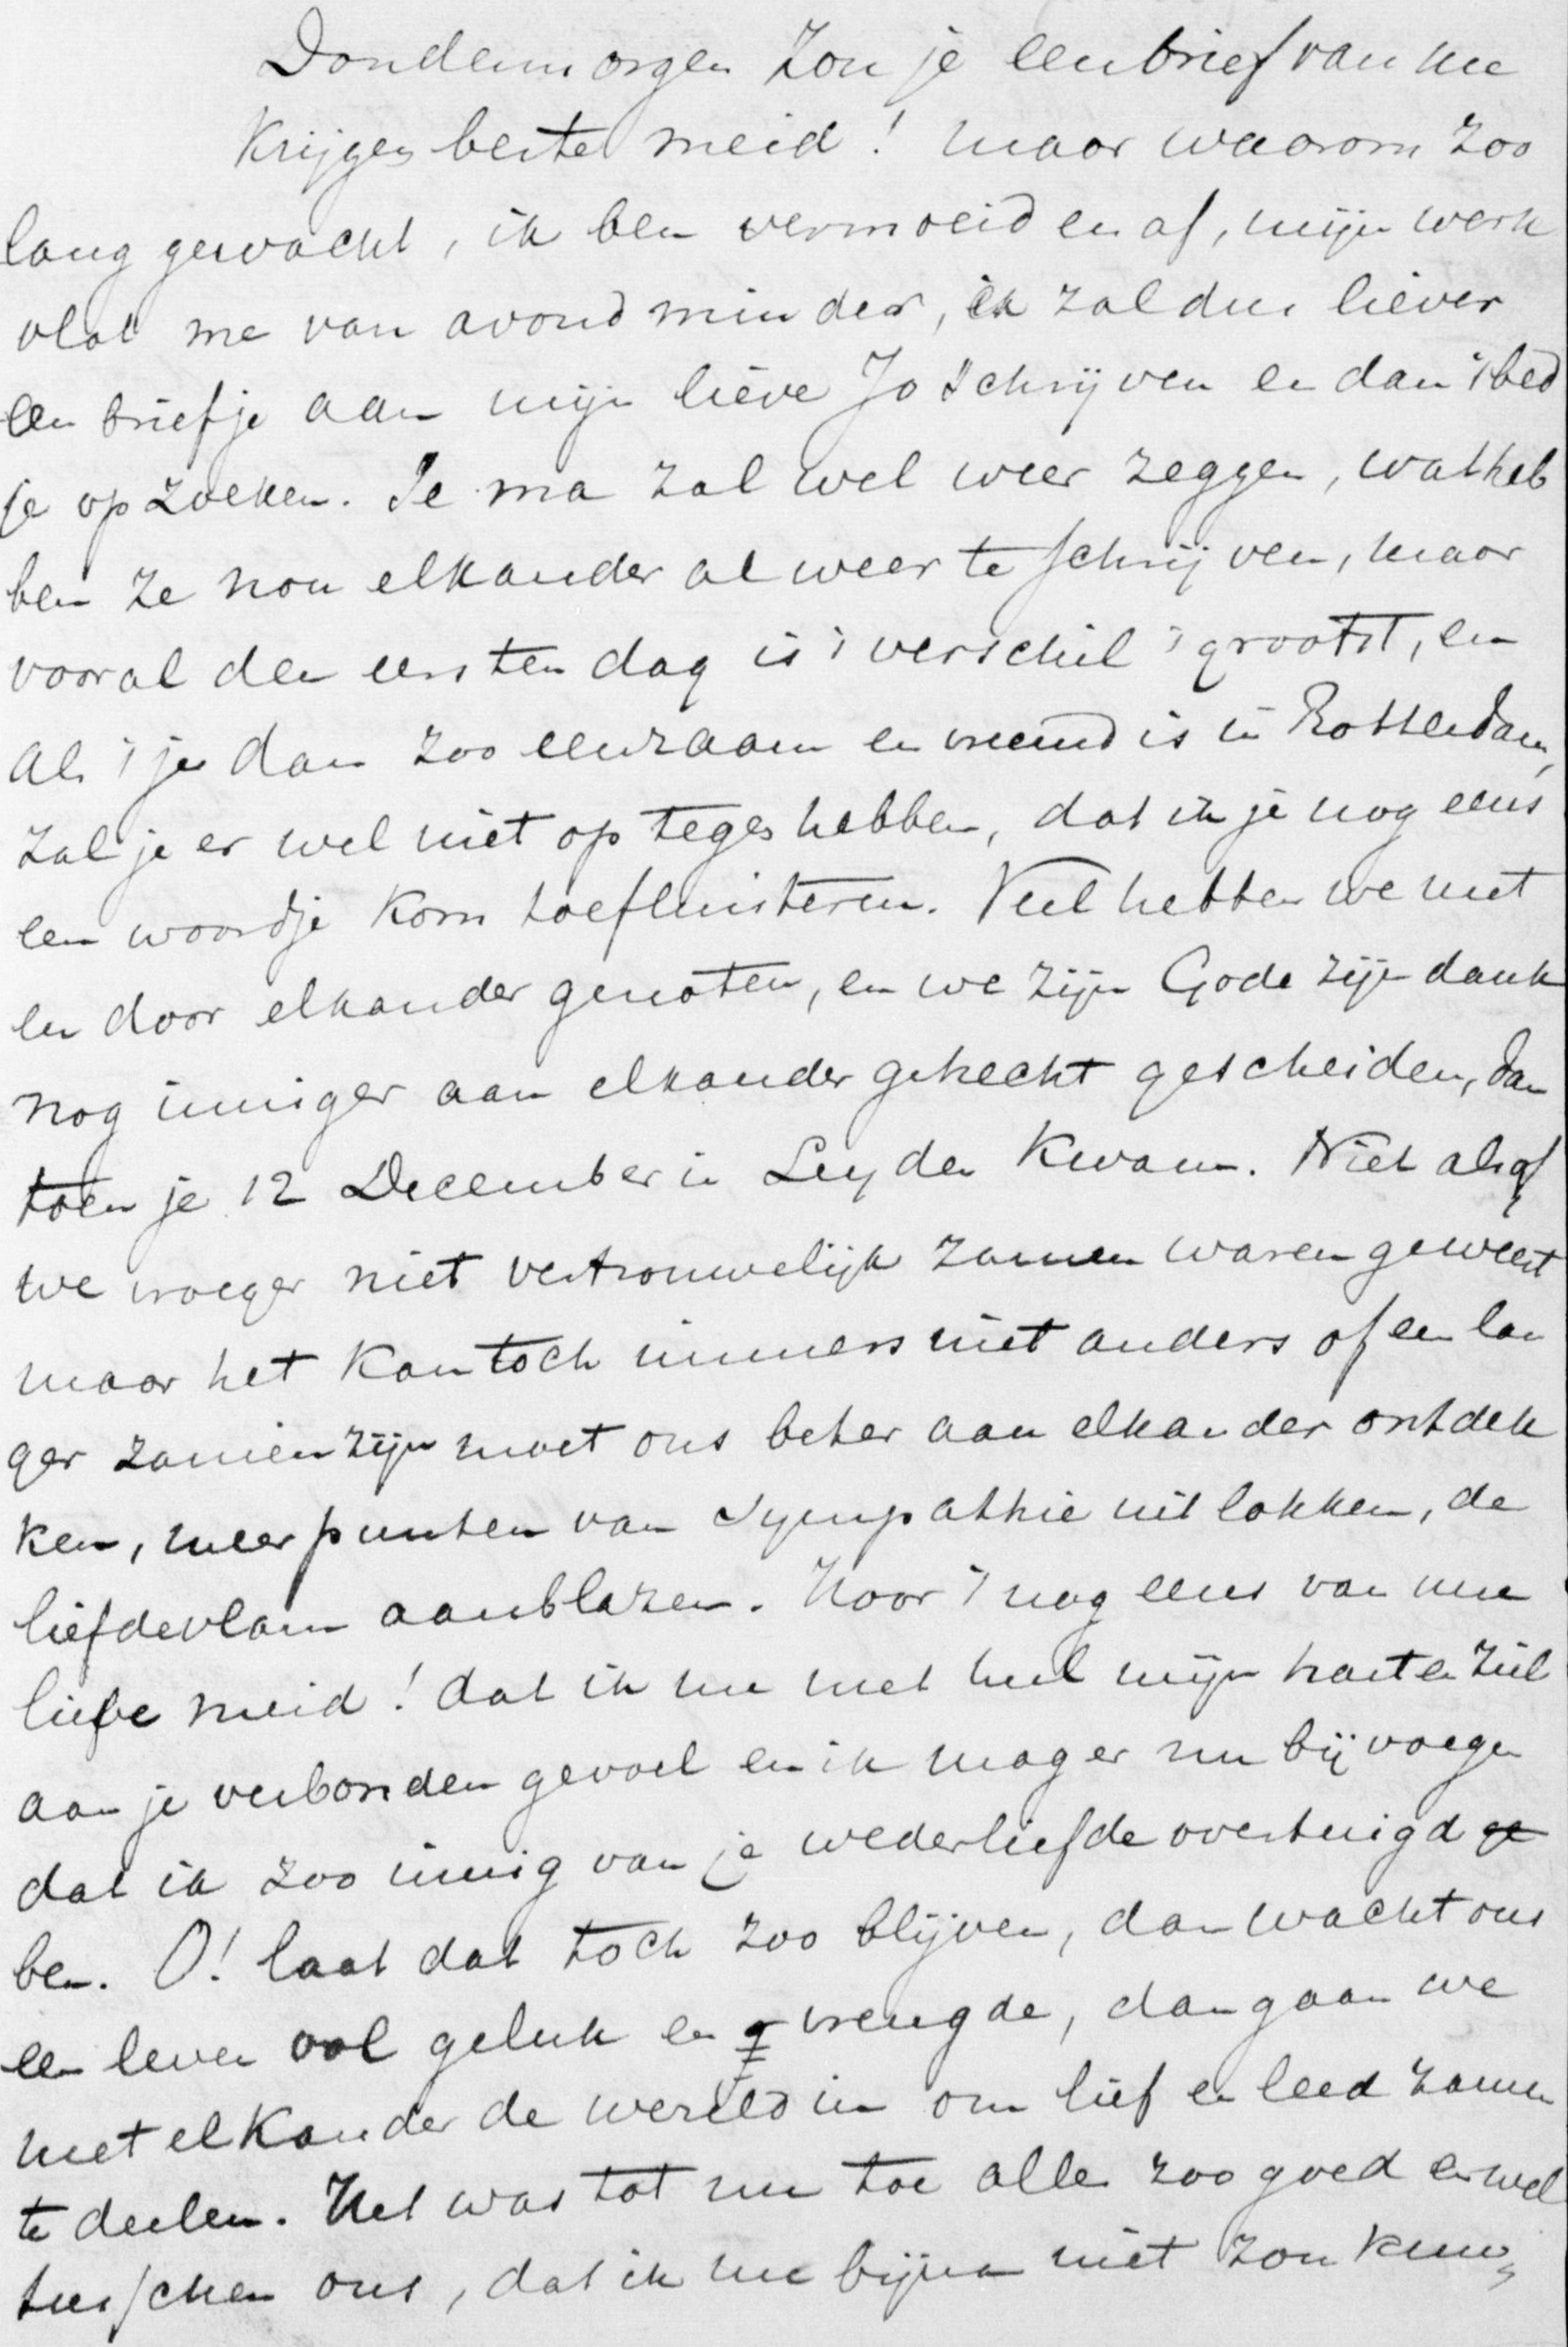 Donderdmorgen zou je een brief van me
krijgen beste meid! maar waarom zoo
lang gewacht, ik ben vermoeid en af, mijn werk
vlot me van avond minder, ik zal dus liever
een briefje aan mijn lieve Jo schrijven en dan 't bed
je op zoeken. Je ma zal wel weer zeggen, wat heb
ben ze nou elkander al weer te schrijven, maar
vooral den eersten dag is 't verschil 't grootst, en
als 't je dan zoo eenzaam en vreemd is in Rotterdam,
zal je er wel niet op tegen hebben, dat ik je nog eens
een woordje kom toefluisteren. Veel hebben we met
en door elkander genoten, en we zijn Gode zij dank
nog inniger aan elkander gehecht gescheiden, dan
toen je 12 December in Leyden kwam. Niet alsof
we vroeger niet vertrouwelijk zamen waren geweest
maar het kan toch immers niet anders of een lan
ger zamenzijn moet ons beter aan elkander ontdek
ken, meer punten van sympathie uitlokken, de
liefdevlam aanblazen. Hoor 't nog eens van me
lieve meid! dat ik me met heel mijn hart en ziel
aan je verbonden gevoel en ik mag er nu bij voegen
dat ik zoo innig van je wederliefde overtuigd ge
ben. O! laat dat toch zoo blijven, dan wacht ons
een leven vol geluk en vreugde, dan gaan we
met elkander de wereld in om lief en leed zamen
te deelen. Het was tot nu toe alles zoo goed en wel
tusschen ons, dat ik me bijna niet zou kun,